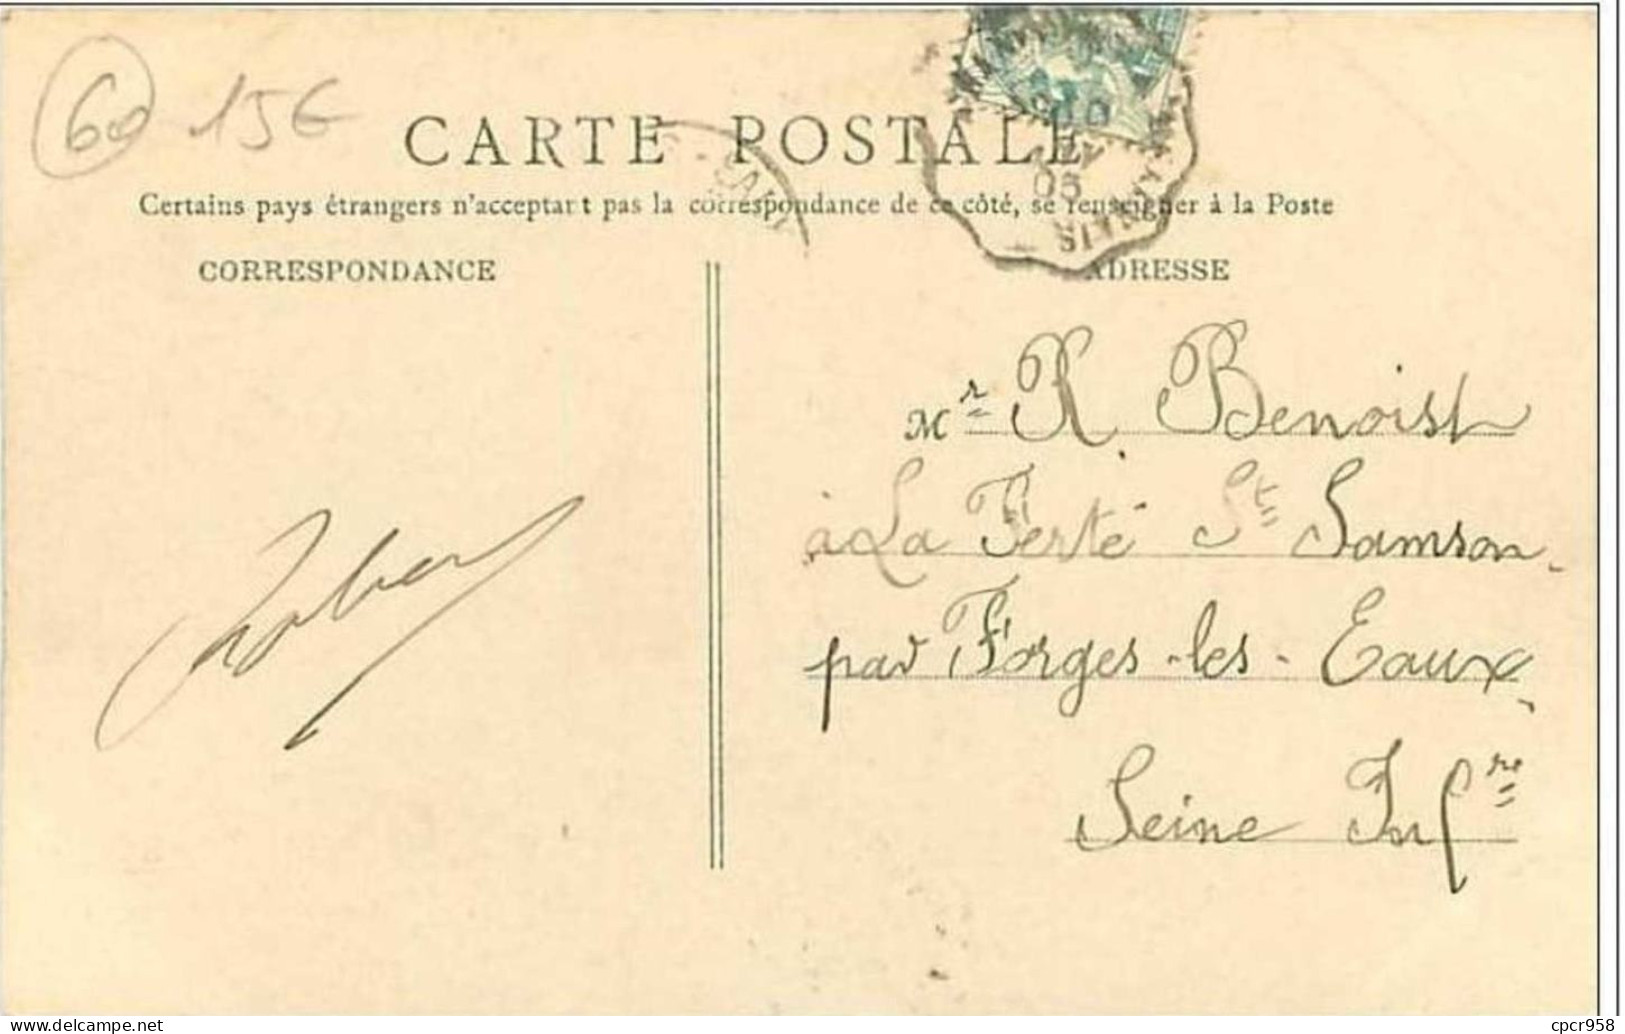 60 15€
CARTE POSTALE
Certains pays étrangers n'acceptant pas la correspondance de ce côté, se renseigner à la Poste
CORRESPONDANCE
ADRESSE
Mr R Benoist
à La Ferté St Samson
par Forges-les-Eaux
Seine Infre
05
cpcr958